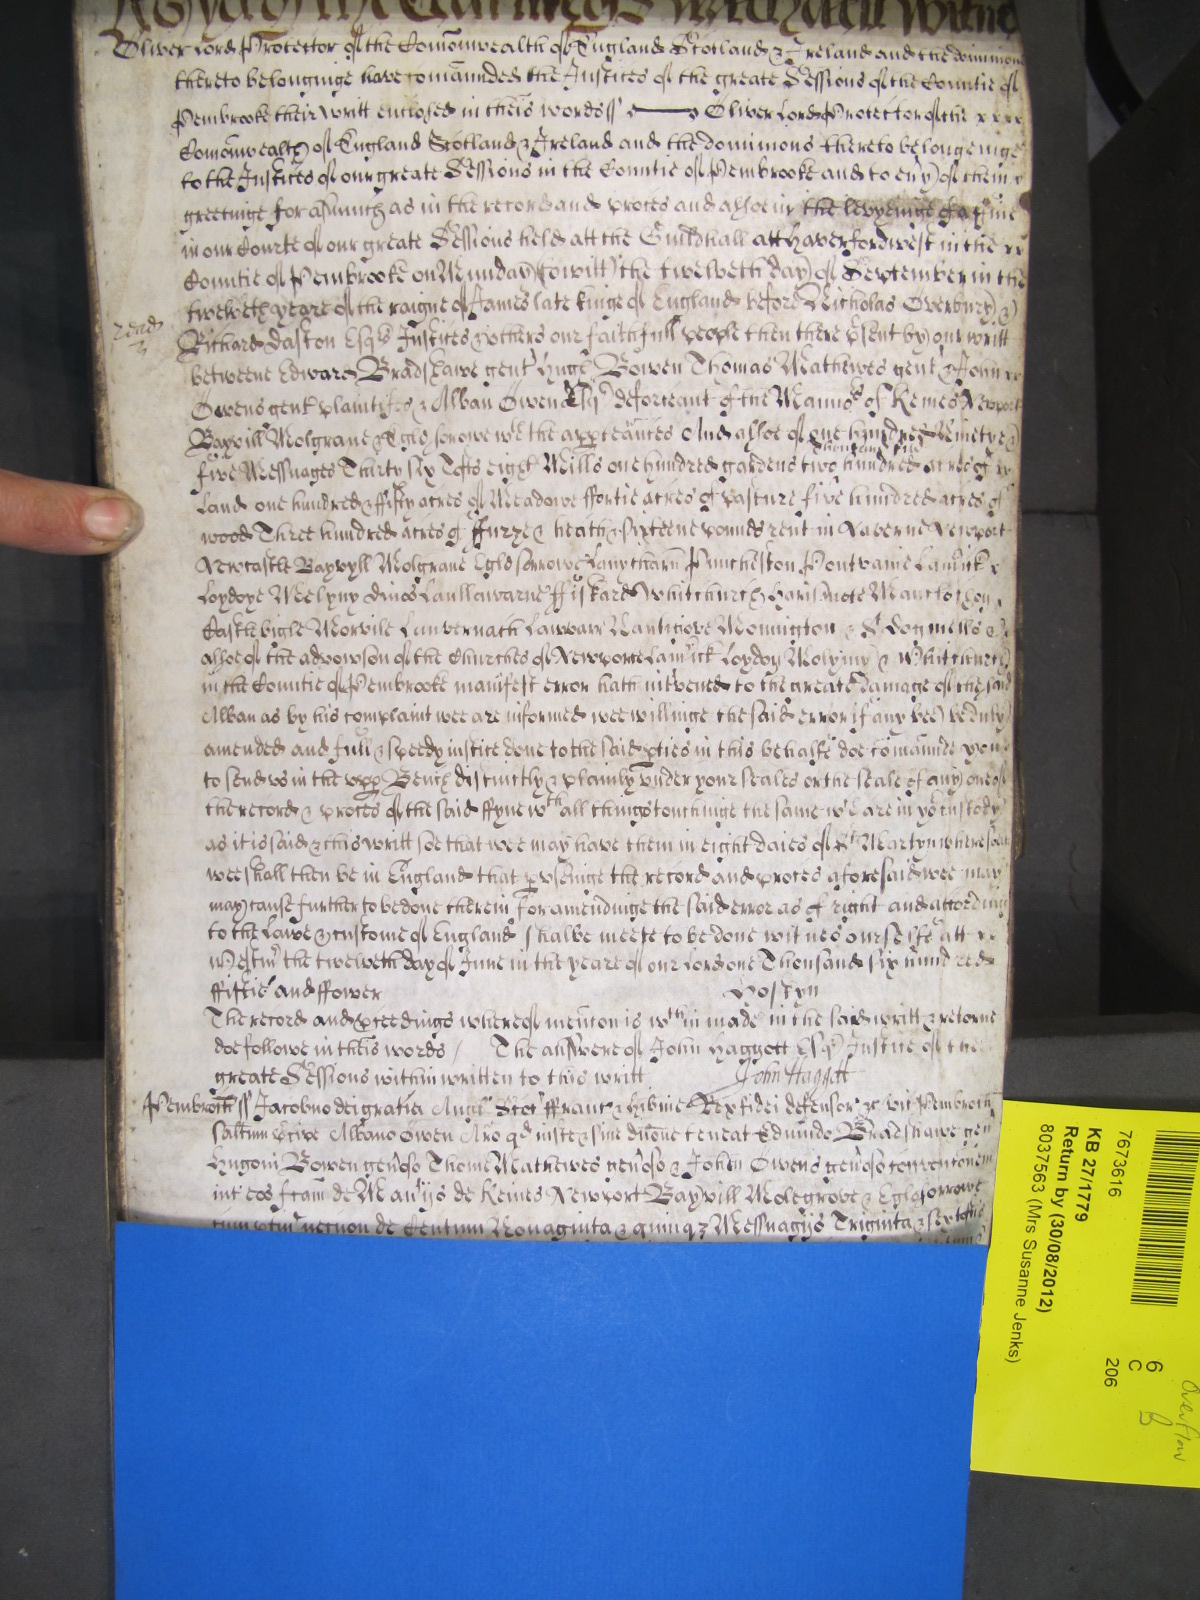 Oliver Lord Protector of the Comonwealth of England Scotland & Ireland and the dominions
thereto belonginge have comaunded the Justices of the greate Sessions of the Countie of
Pembrooke their writt enclosed in theis words ss Oliver Lord Protector of the
Comonwealth of England Scotland & Ireland and the dominions thereto belongeinge
to the Justices of our greate Sessions in the Countie of Pembrooke and to eny of them
greetinge forasmuch as in the record and proces and alsoe in the levyeinge of a ffine
in our Courte of our greate Sessions held att the Guildhall att Haverfordwest in the
Countie of Pembrooke on Munday (to witt) the twelweth day of September in the
twelweth yeare of the raigne of James late kinge of England before Nicholas Overbury &
Richard Daston Esqs Justices & others our faithfull people then there psent by our writt
betweene Edward Bradshawe gent Hugh Bowen Thomas Mathewes gent & John
Owens gent plaintifes & Alban Owen Esqr deforceant of the Mannors of Kemes Newport
Bayvill Molgrane & Eglosorowe wth the apptenances And alsoe of one hundred Ninetye &
thousand five
five Messuages Thirty six Tofts eight Mills one hundred gardens two hundred acres of
Land one hundred & ffifty acres of Meadowe ffortie acres of pasture five hundred acres of
wood Three hundred acres of ffurze & heath & sixteene pounds rent in Newport
Newcastle Bayvyll Molgrane Eglosorrowe Puncheston Pontvaine
ffiskard Whitchurch
Castlebigle Morvile Monnington & St Dogmells &
alsoe of the advowson of the Churches of Newporte & Whitchurch
in the Countie of Pembrooke manifest error hath intvened to the greate damage of the said
Alban as by his complaint wee are informed wee willinge the said error if any bee be duly
amended and full & speedy justice done to the said pties in this behalfe doe comaunde you
to send us in the upp Bench distinctly & plainly under your seales or the seale of any one of
the record & proces of the said ffyne wth all things touchinge the same wch are in yor custody
as it is said & this writt soe that wee may have them in eight daies of St Martyn wheresoev
wee shall then be in England that pvseinge the record and proces aforesaid wee may
may cause further to be done therein for amendinge the said error as of right and accordinge
to the Lawe & custome of England shalbe meete to be done witnes ourselfe att
Westmr the twelweth day of June in the yeare of our Lord one Thousand six hundred
ffiftie and ffower Dostyn
The record and pceedings whereof mencon is wthin made in the said writt & retorne
doe followe in theis words / The answere of John Haggett Esqr Justice of the
greate Sessions within written to this writt John Haggett
Pembroch ss Jacobus dei gratia Angl Scot ffranc & Hibnie Rex fidei defensor &c vic Pembroch
saltm Albano Owen Aro qd iuste & sine dilone teneat Edwardo Bradshawe gen
Hugoni Bowen genoso Thome Mathewes genoso & Johni Owens genoso conventonem
int eos fcam de Manijs de Kemes Newport Bayvill Molegrove & Eglosorrowe
cum ptin necnon de Centum Nonaginta & quinq Messuagijs Triginta & sex toftis
7673616
KB 27/1779
Return by (30/08/2012)
8037563 (Mrs Susanne Jenks)
6
C
206
Overflow
B